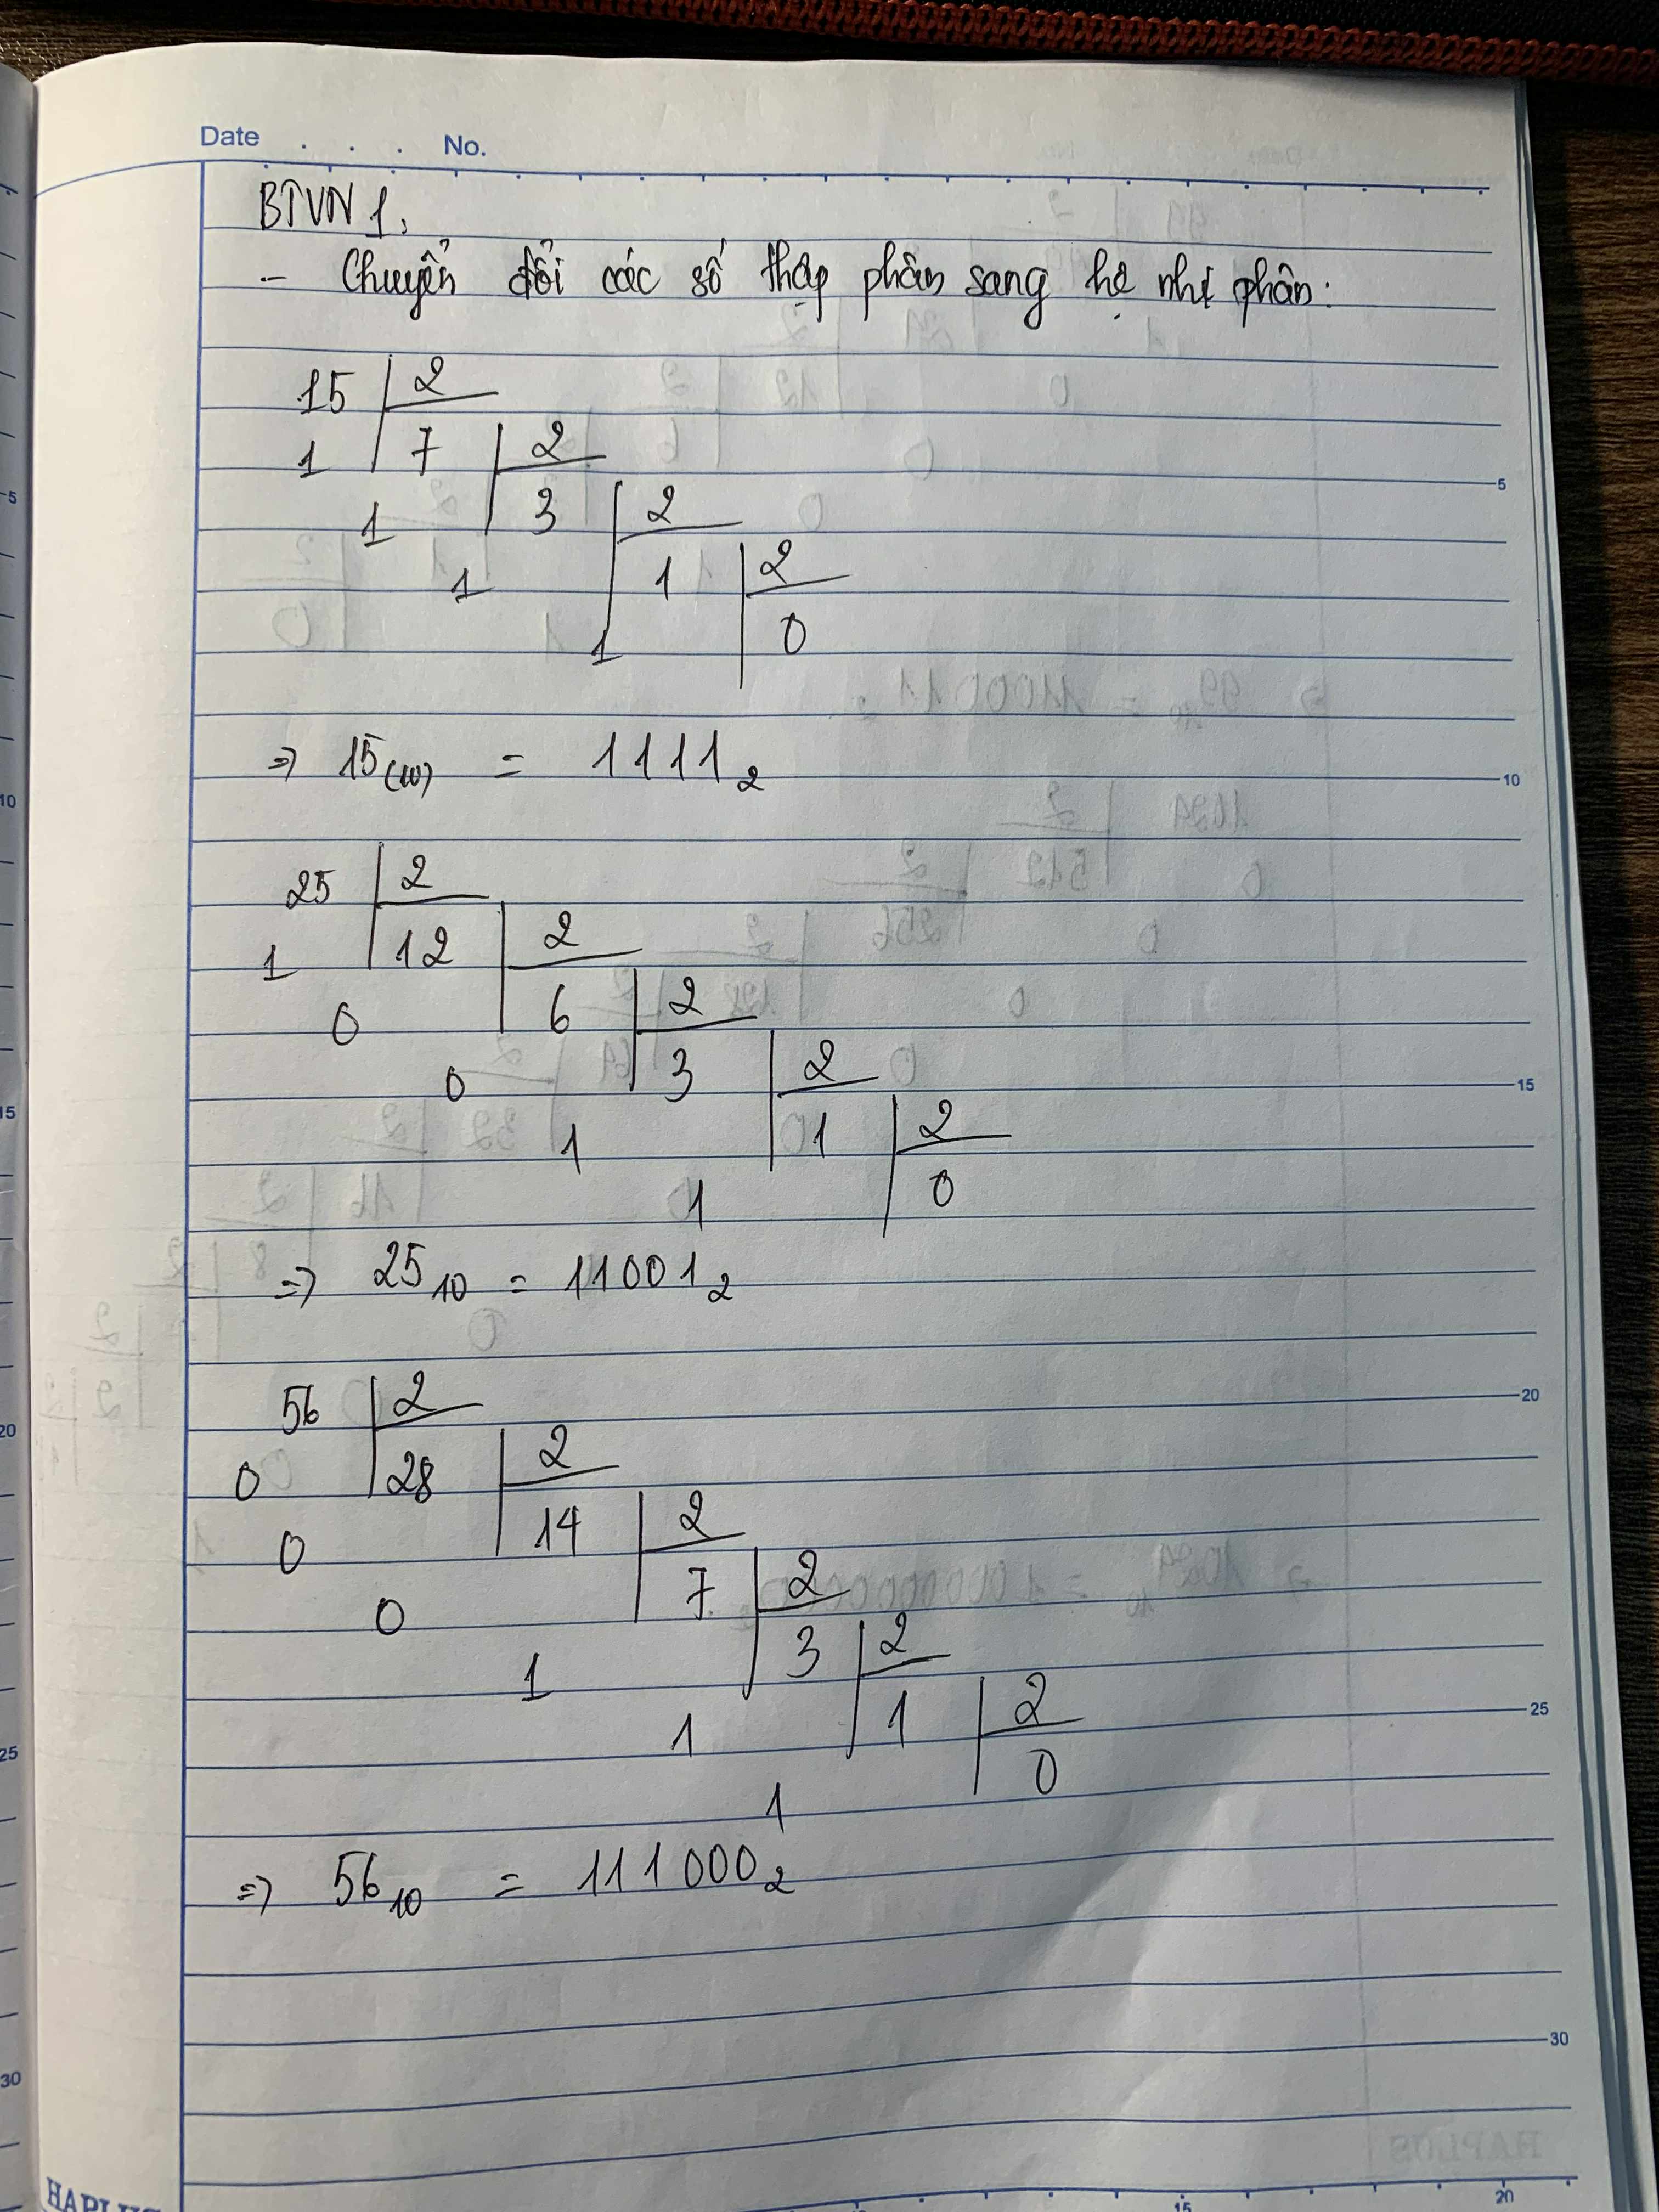 Date . . . No.
BTVN 1.
- Chuyển đổi các số thập phân sang hệ nhị phân:
15 2
1 7 2
1 3 2
1 1 2
1 0
=> 15(10) = 1111 2
25 2
1 12 2
0 6 2
0 3 2
1 1 2
1 0
=> 25 10 = 11001 2
56 2
0 28 2
0 14 2
0 7 2
1 3 2
1 1 2
1 0
=> 56 10 = 111000 2
5
10
15
20
25
30
5
10
15
20
25
30
15 20
HAPLUS